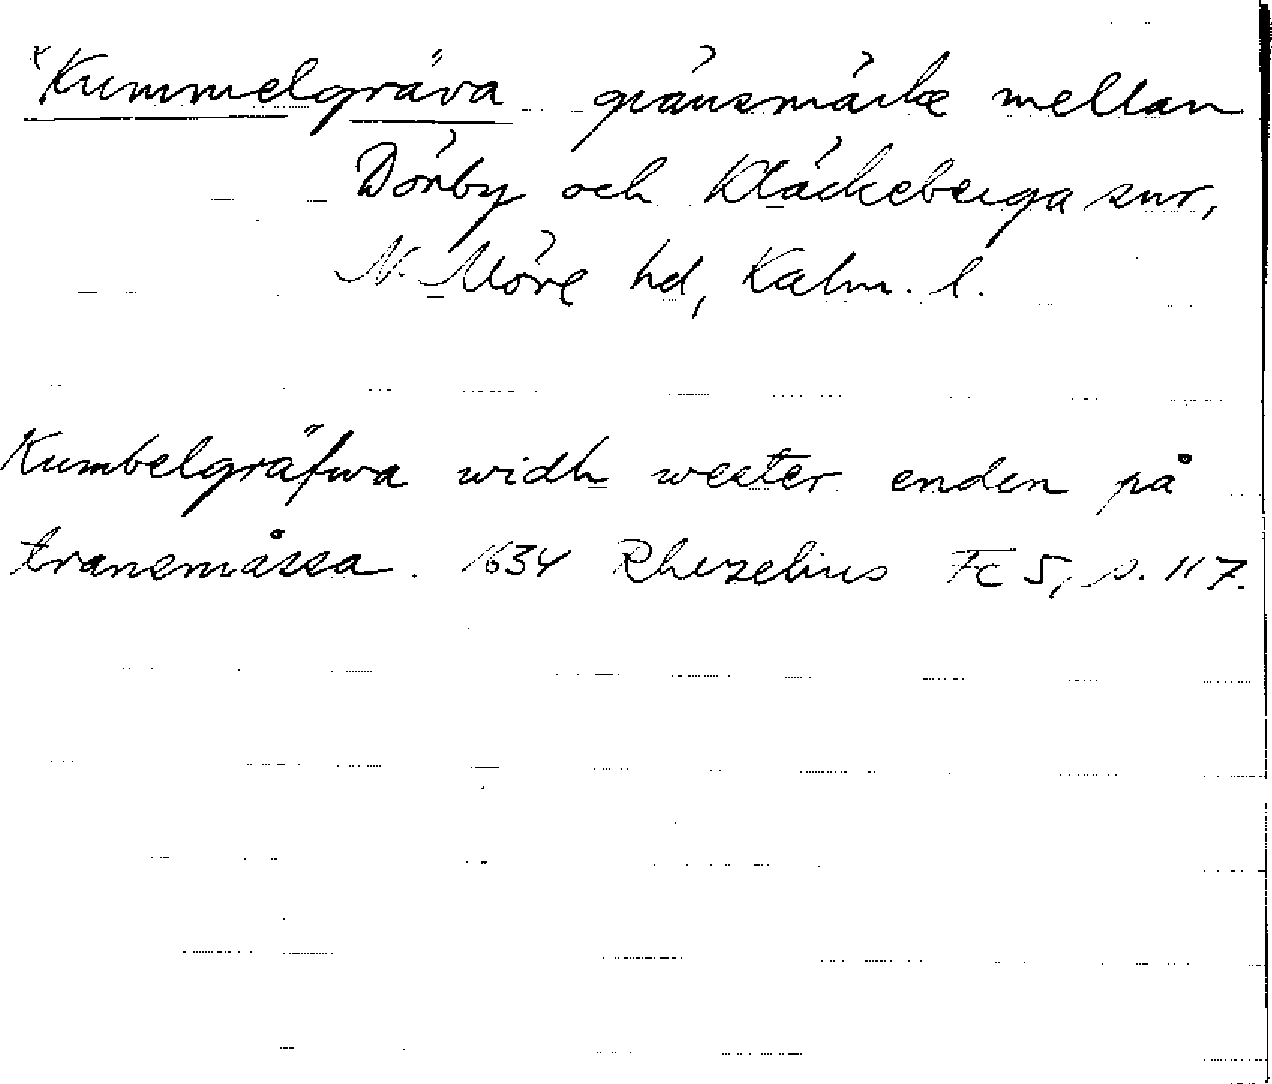 *Kummelgräva gränsmärke mellan
Dörby och Kläckeberga snr,
N. Möre hd, Kalm. l.
Kumbelgräfwa widh wester enden på
transmåssa. 1634 Rhezelius Fc 5, s. 117.